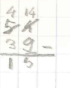 4 14
5 4
3 9 -
1 5